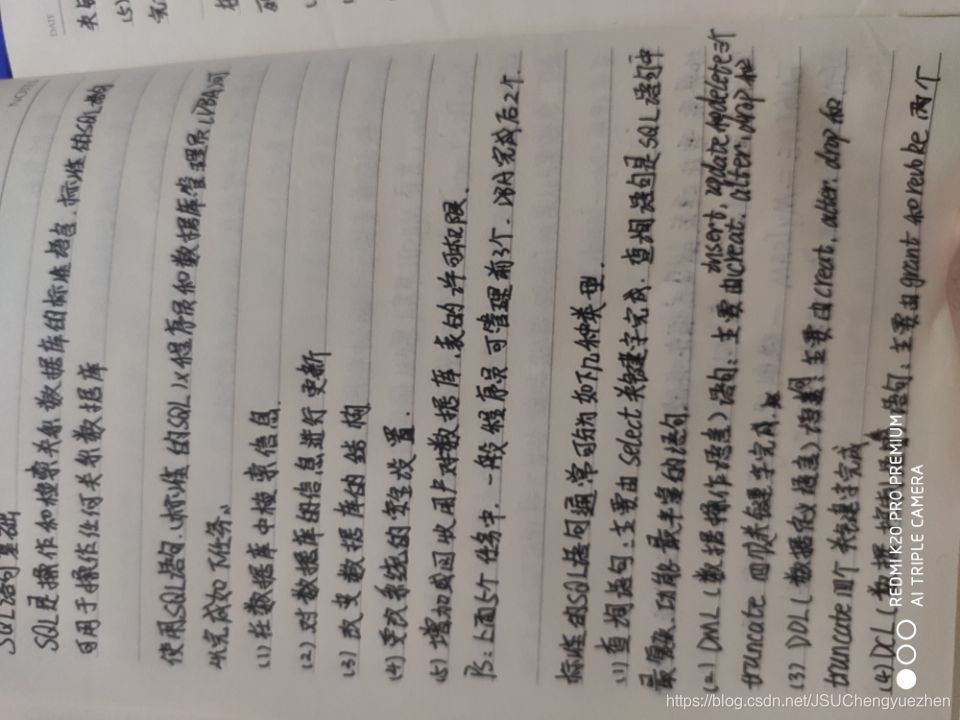 SQL语句基础
SQL是操作和检索关系数据库的标准语言,标准的SQL语句
可用于操作任何关系数据库
使用SQL语句,(标准的SQL)程序员和数据库管理员(DBA)可
以完成如下任务。
(1)在数据库中检索信息.
(2)对数据库的信息进行更新
(3)改变数据库的结构
(4)更改系统的安全设置.
(5)增加或回收用户对数据库,表的许可权限.
PS:上面5个任务中,一般程序员可管理前3个,DBA完成后2个.
标准的SQL语句通常可分为如下几种类型.
(1)查询语句:主要由select关键字完成,查询语句是SQL语句中
最复杂、功能最丰富的语句.
(2)DML(数据操作语言)语句:主要由insert,update和delete三个
creat,alter,drop和
truncate四个关键字完成
(3)DDL(数据定义语言)语句:主要由creat,alter,drop和
truncate四个关键字完成
(4)DCL(数据控制语言)语句:主要由grant和revoke两个
NO
DATE
REDMI K20 PRO PREMIUM
AI TRIPLE CAMERA
https://blog.csdn.net/JSUChengyuezhen